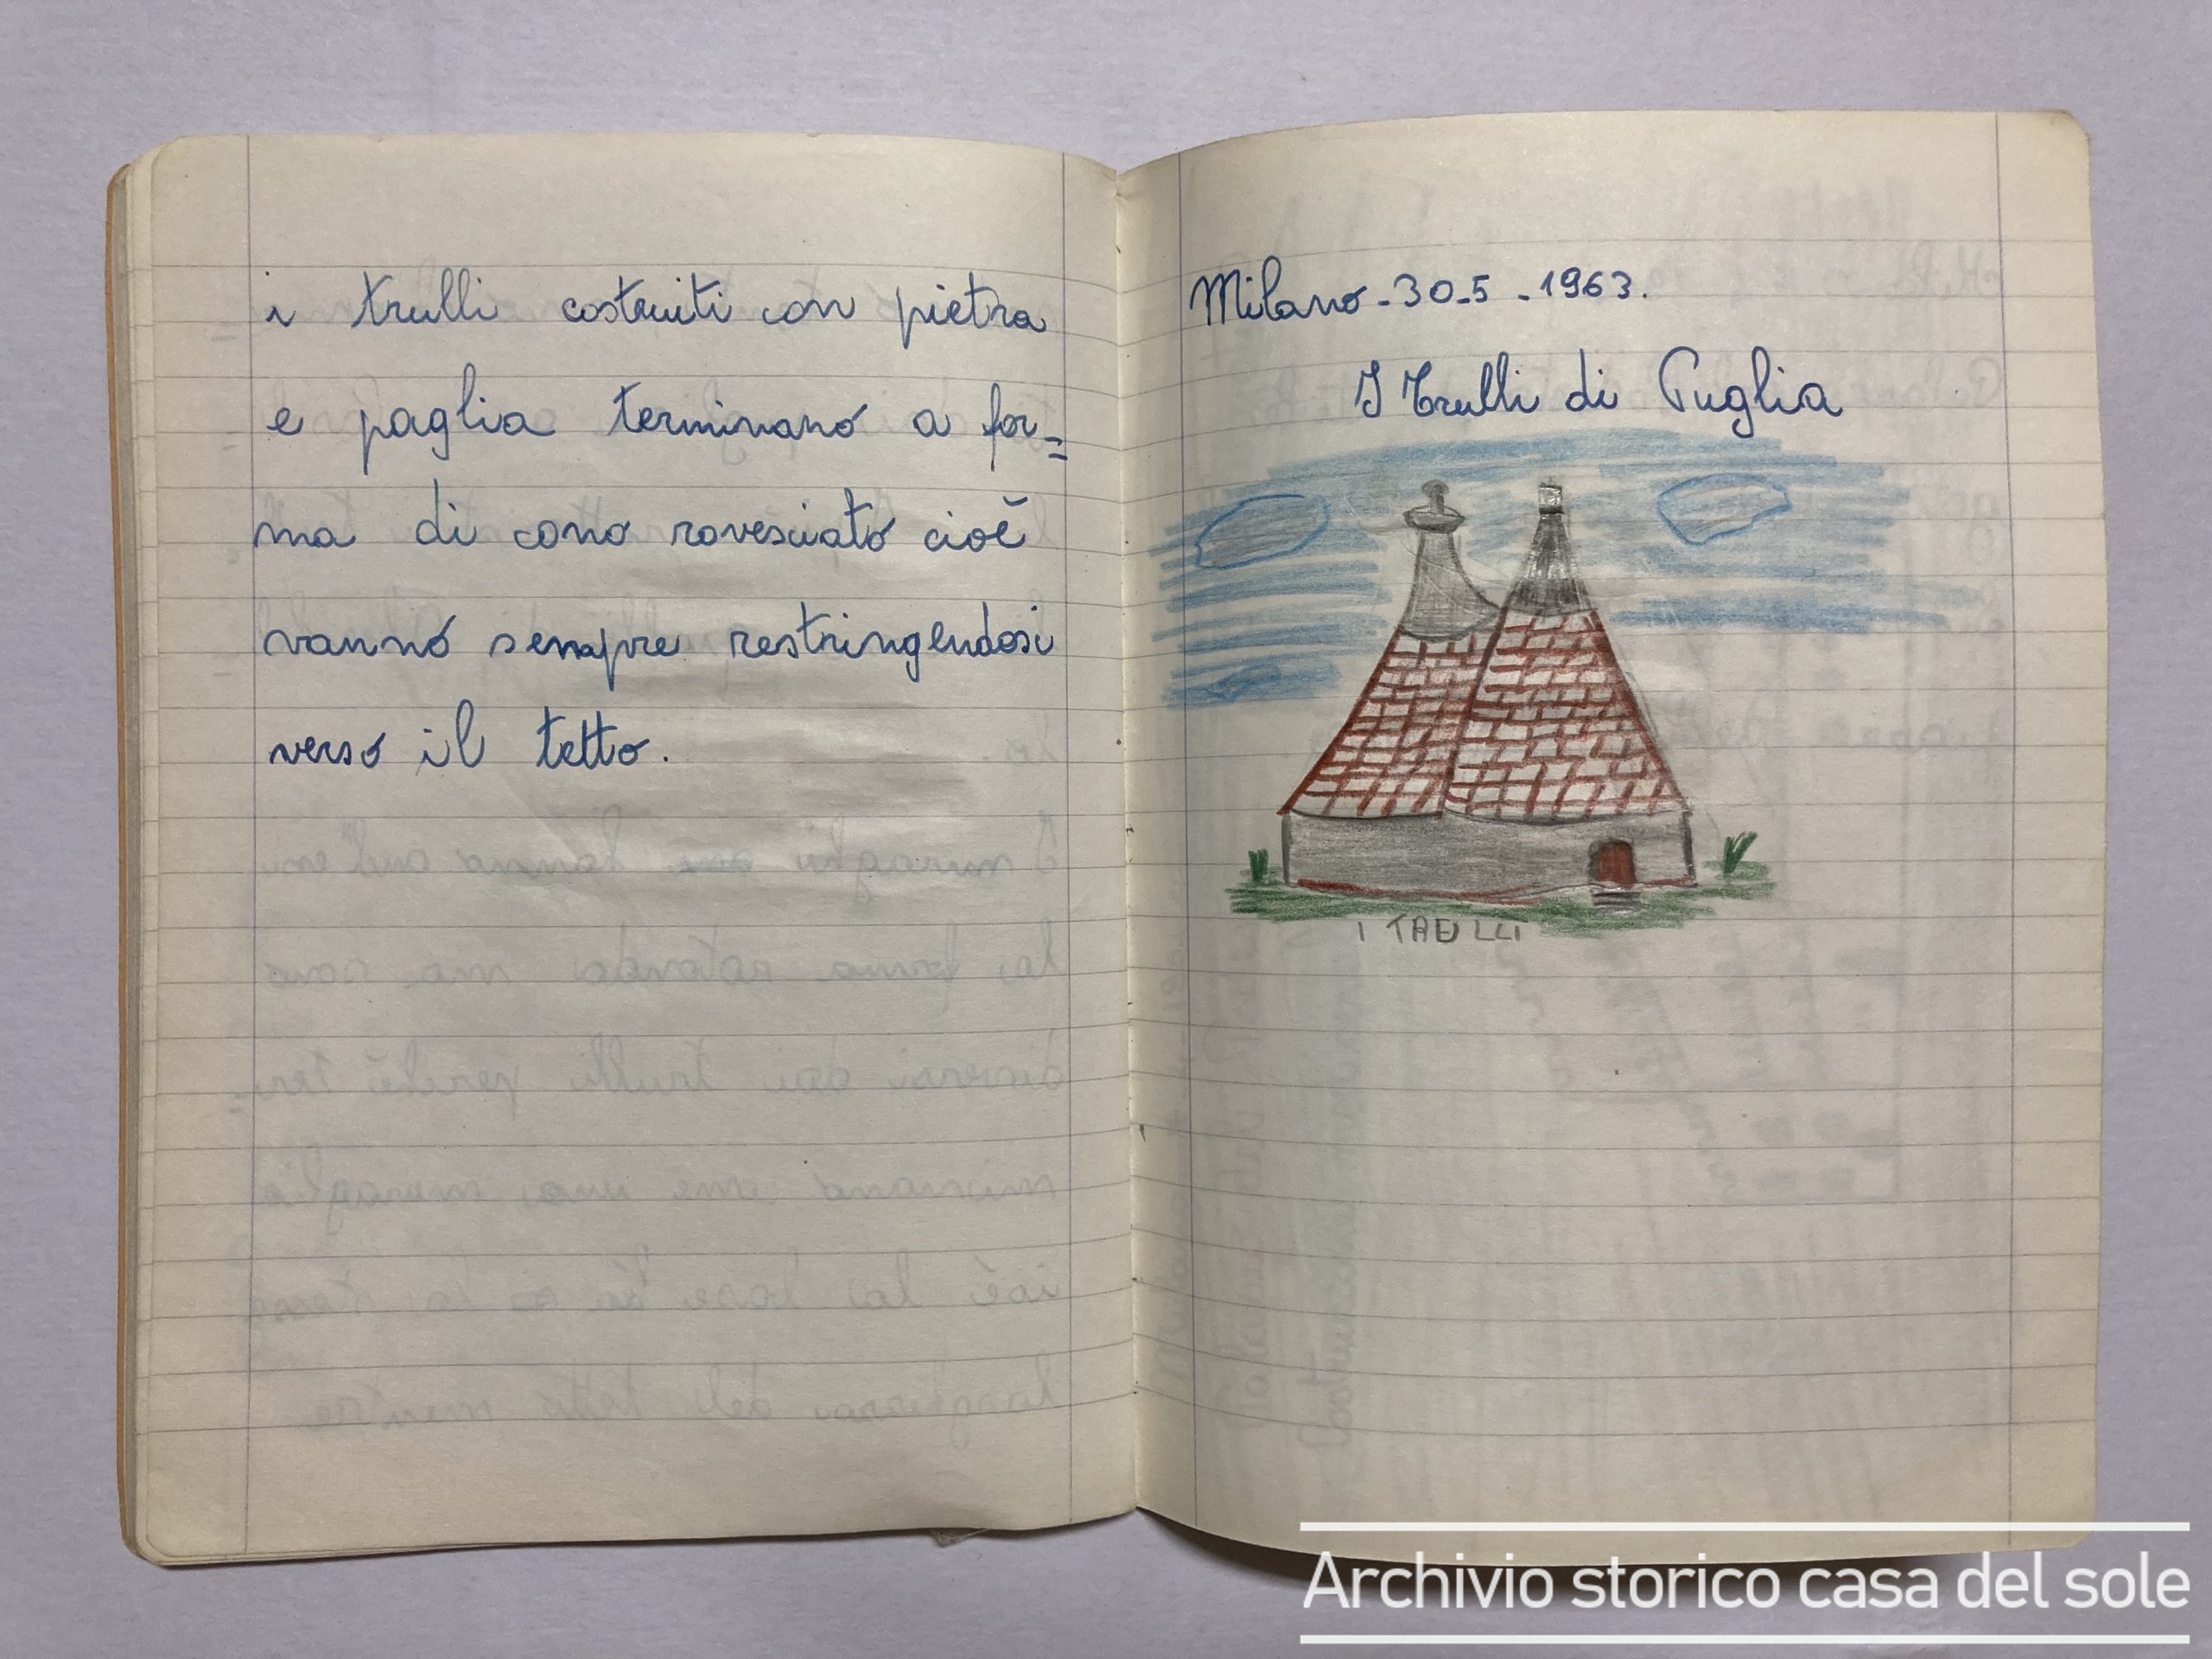 i trulli costruiti con pietra
e paglia terminano a for=
ma di cono rovesciato cioè
vanno sempre restringendosi
verso il tetto.
Milano - 30-5-1963.
I Trulli di Puglia
I TRULLI
Archivio storico casa del sole